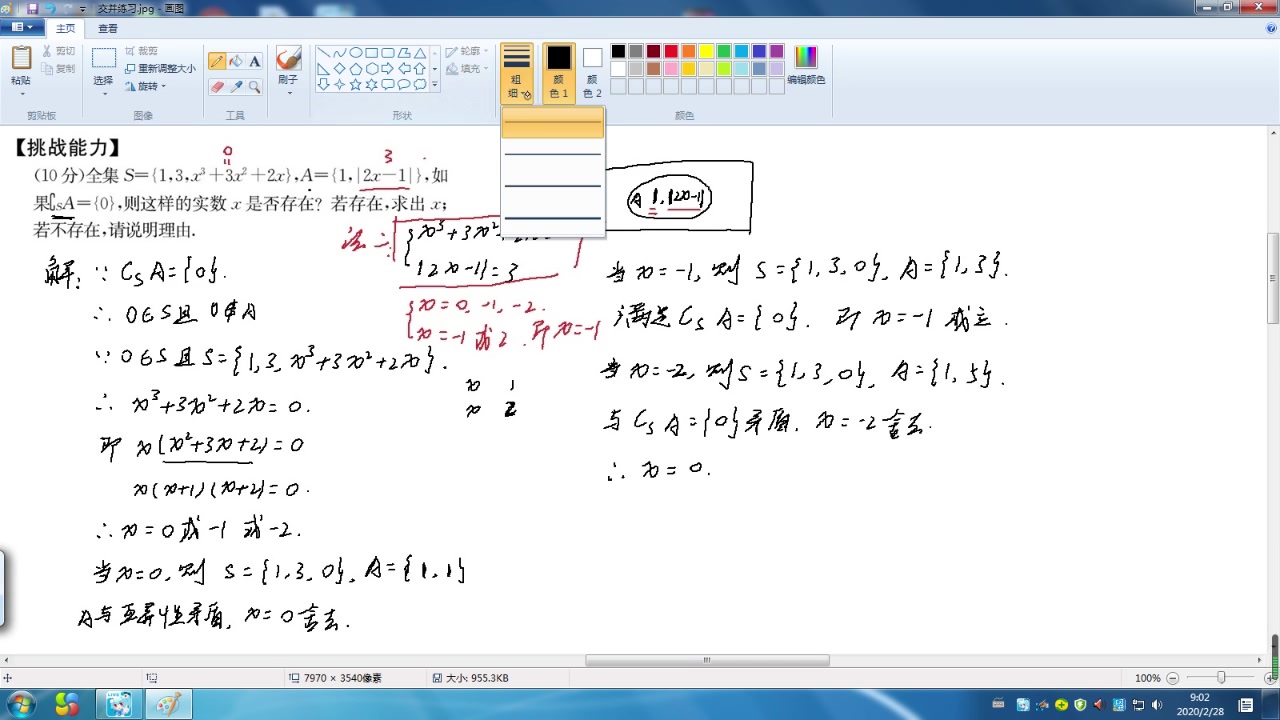 交并练习.jpg - 画图
主页 查看
粘贴 剪切 复制 选择 裁剪 重新调整大小 旋转 刷子 轮廓 填充 粗细 颜色 1 颜色 2 编辑颜色
剪贴板 图像 工具 形状 颜色
【挑战能力】
0
3
(10 分)全集 S={1,3,x³+3x²+2x},A={1,|2x-1|},如
果∁sA={0},则这样的实数 x 是否存在? 若存在,求出 x;
若不存在,请说明理由.
A 1, |2x-1|
法二:
x³+3x²
|2x-1|=3
x=0, -1, -2.
x=-1 或 2. 即 x=-1
x 1
x 2
解: ∵ CsA={0}.
∴ 0∈S且 0∉A
∵ 0∈S且 S={1,3, x³+3x²+2x}.
∴ x³+3x²+2x=0.
即 x(x²+3x+2)=0
x(x+1)(x+2)=0.
∴ x=0或-1 或-2.
当x=0, 则 S={1,3,0}, A={1,1}
A与互异性矛盾, x=0舍去.
当 x=-1, 则 S={1,3,0}, A={1,3}.
满足 CsA={0}. 即 x=-1 成立.
当 x=-2, 则 S={1,3,0}, A={1,5}.
与 CsA={0}矛盾. x=-2 舍去.
∴ x=0.
7970 × 3540像素 大小: 955.3KB 100%
9:02
2020/2/28